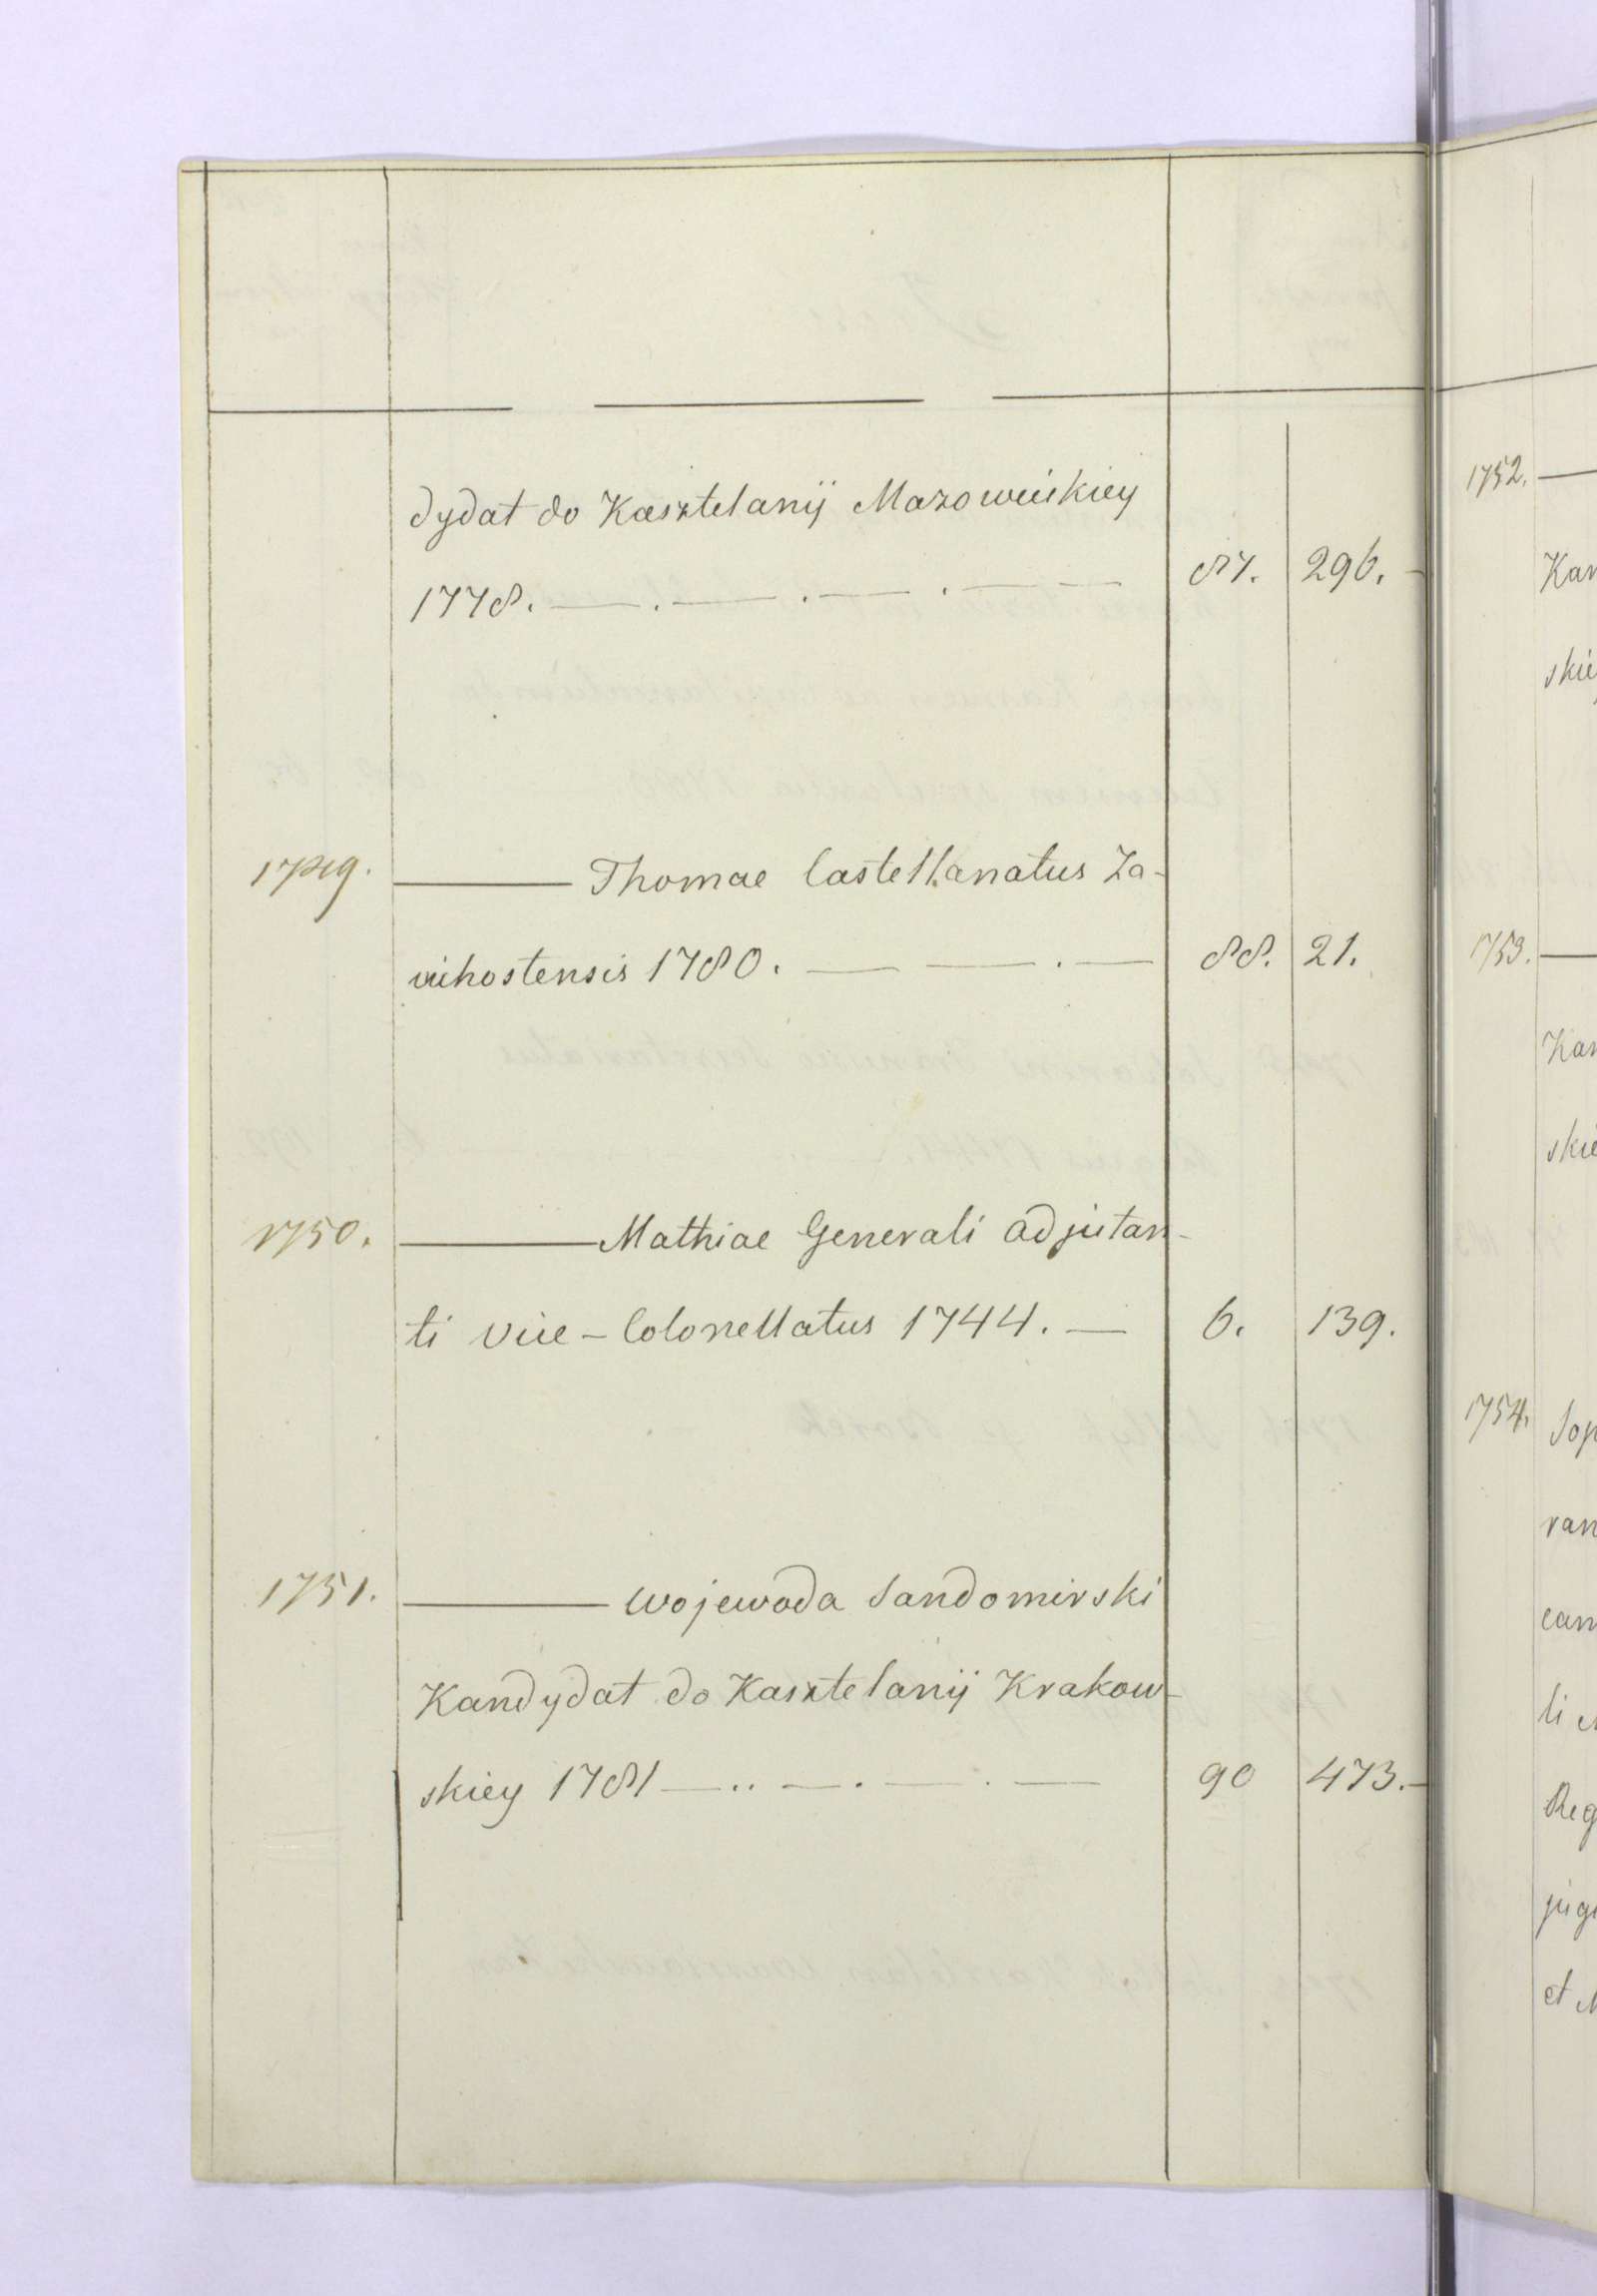 dydat do Kasztelanij Mazowieckiey
1778. — . — . — . — — 87. 296. -
1749. ——— Thomae Castellanatus Za-
wichostensis 1780. — — . — 88. 21.
1750. ——— Mathiae Generali adjutan-
ti Vice-Colonellatus 1744. — 6. 139.
1751. ——— Wojewoda Sandomirski
Kandydat do Kasztelanij Krakow-
skiey 1781 — .. — . — . — 90 473. -
1752. —
Kan
skie
1753. —
Kan
skie
1754. Sop
ran
cam
li
Reg
jug
et